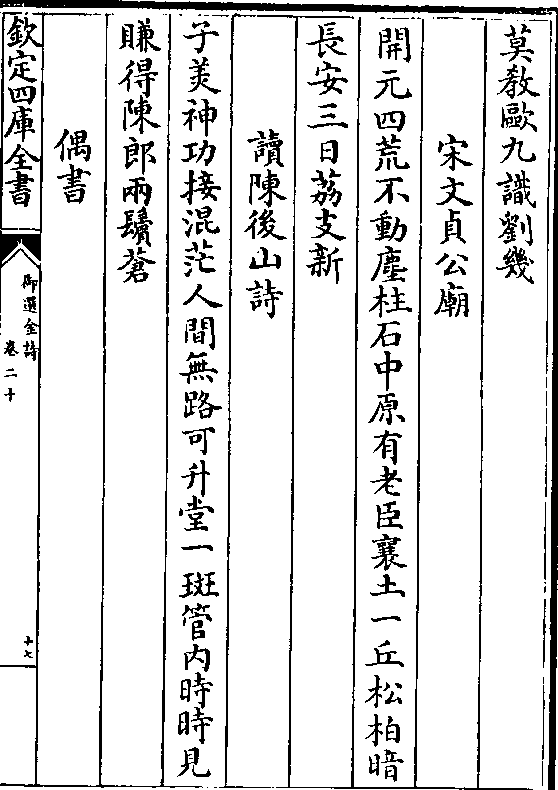 莫教歐九識劉幾
宋文貞公廟
開元四荒不動塵柱石中原有老臣襄土一丘松柏暗
長安三日荔支新
讀陳後山詩
子美神功接混茫人間無路可升堂一斑管内時時見
賺得陳郎兩鬢蒼
偶書
欽定四庫全書
御選金詩
卷二十
十七